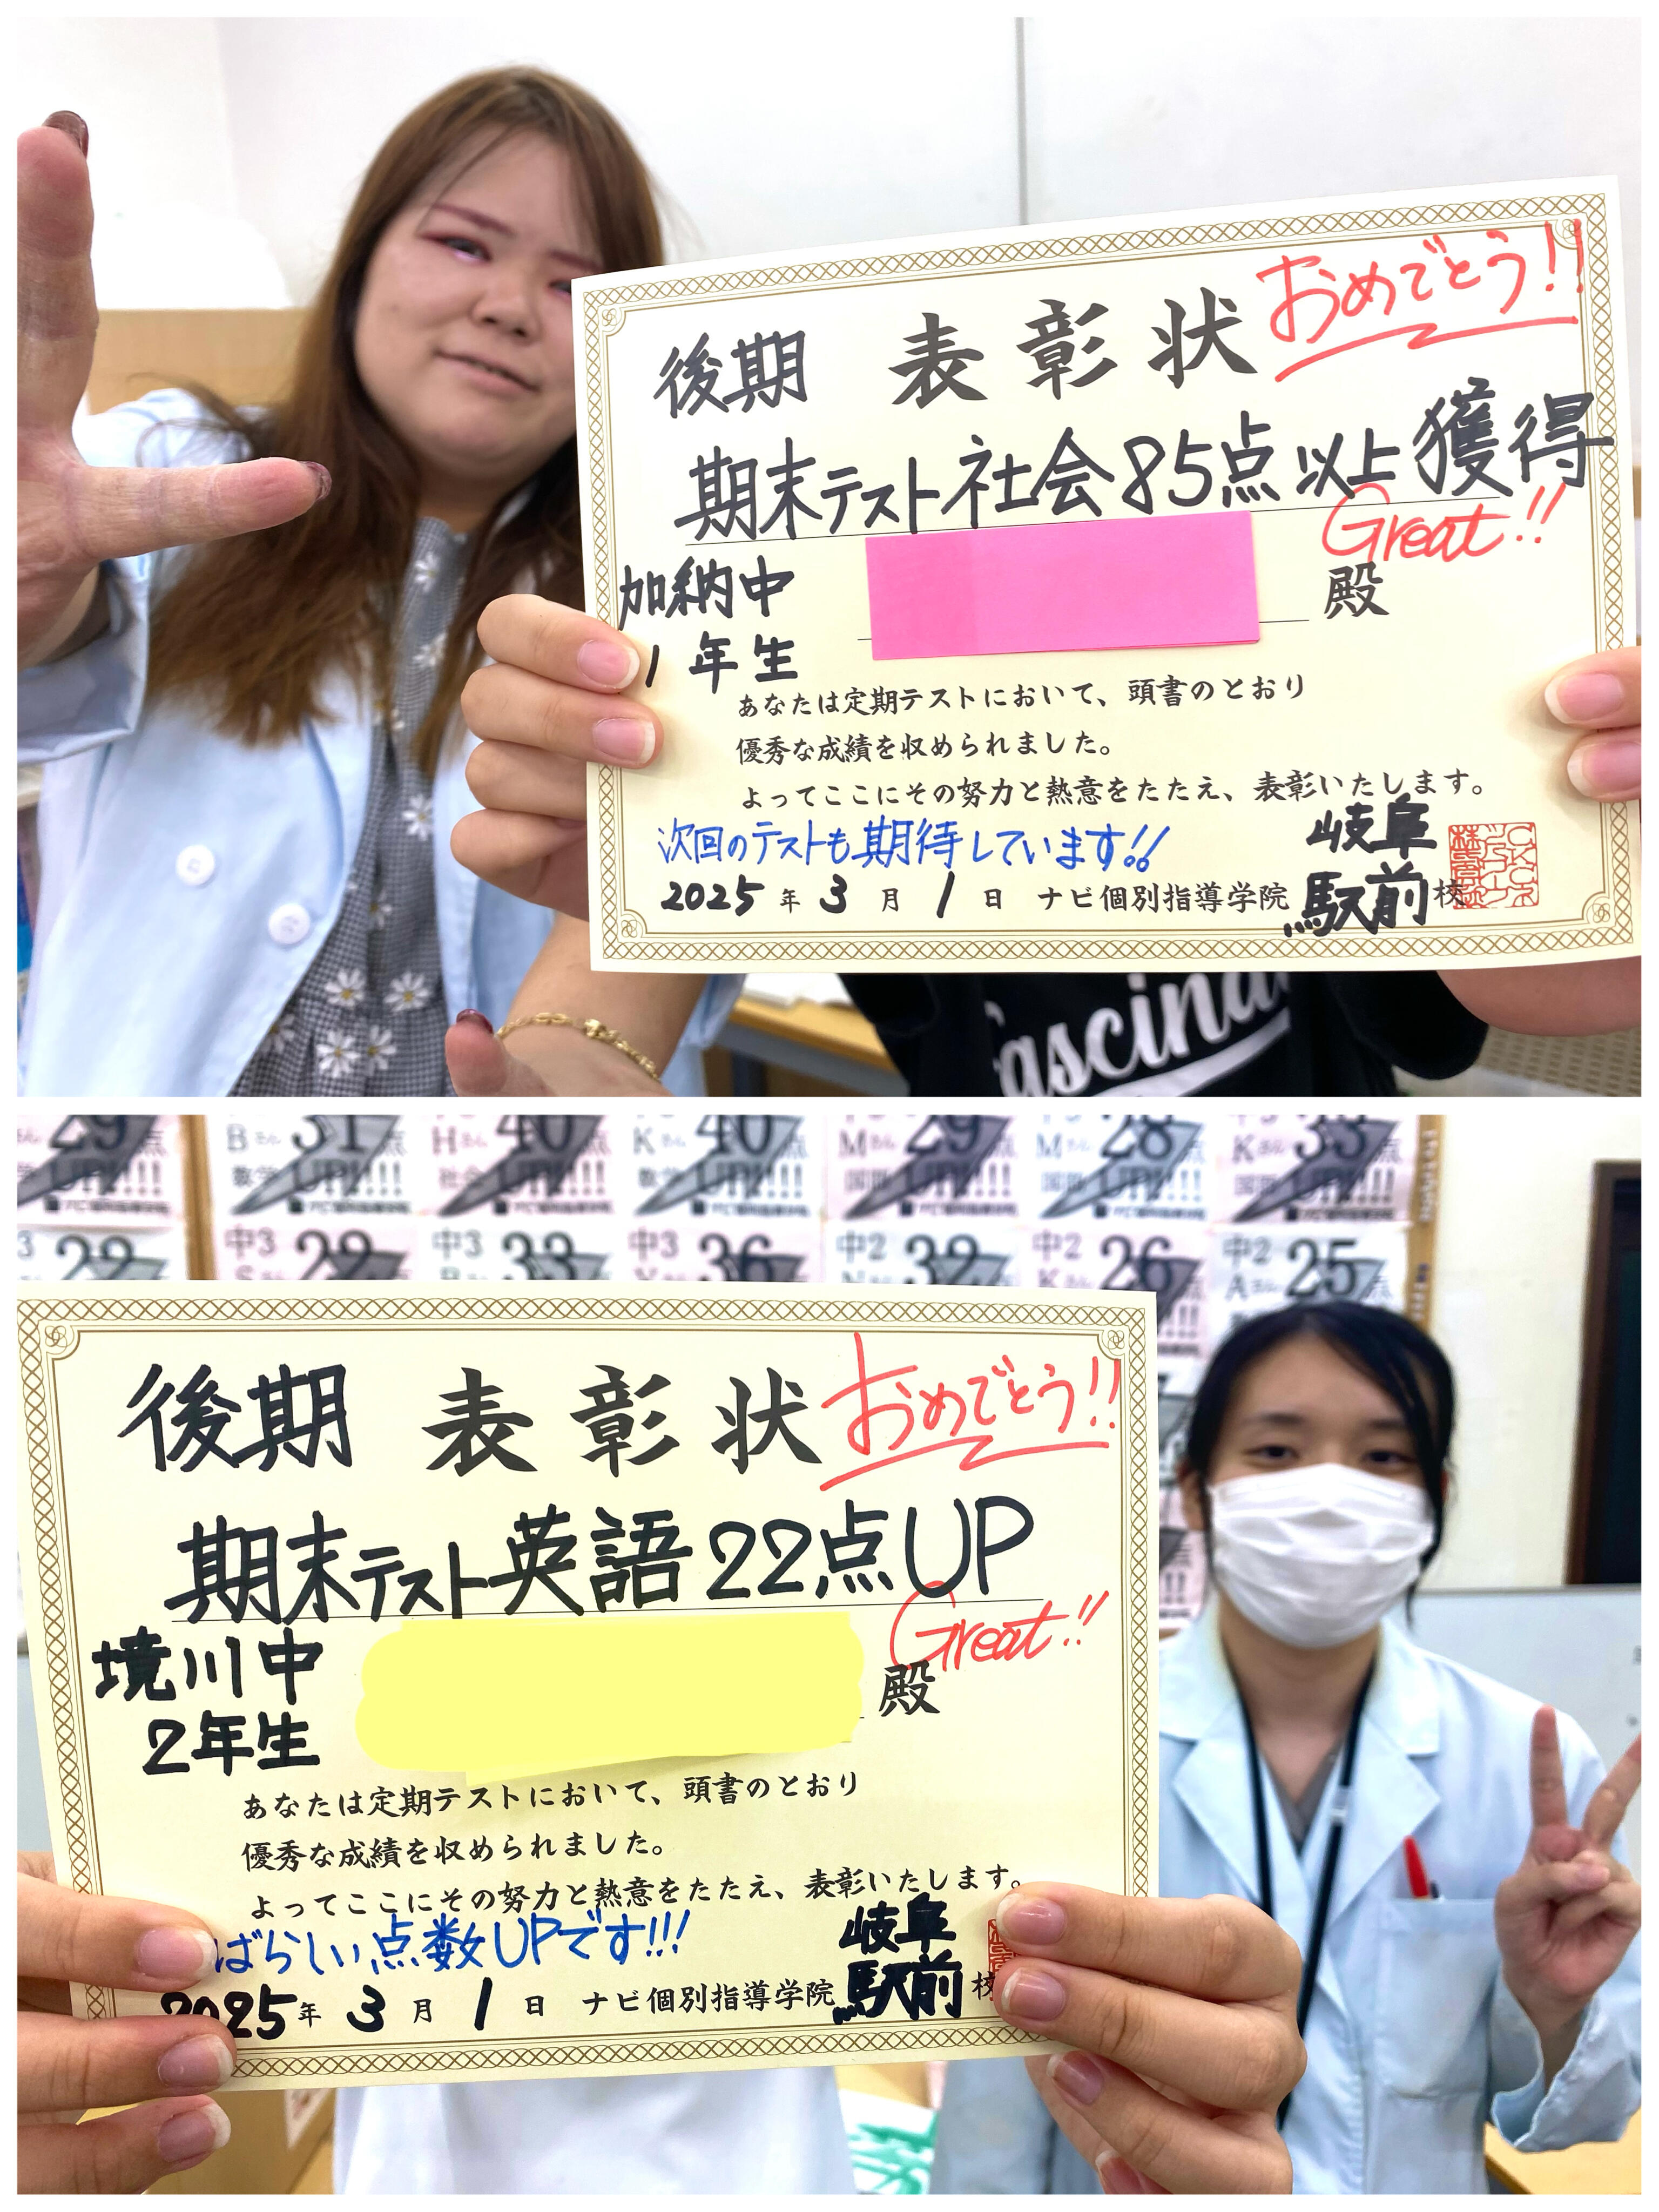 後期 表彰状 おめでとう!!
期末テスト社会85点以上獲得
Great!!
加納中
1年生
殿
あなたは定期テストにおいて、頭書のとおり
優秀な成績を収められました。
よってここにその努力と熱意をたたえ、表彰いたします。
次回のテストも期待しています!!
2025年3月1日 ナビ個別指導学院 岐阜駅前校
29
B さん 31
数学 UP!!!
H さん 40
社会 UP!!!
K さん 40
数学 UP!!!
M さん 29
国語 UP!!!
M さん 28
国語 UP!!!
K さん 33
国語 UP!!!
3 22
中3 22
中3 33
中3 36
中2 32
中2 26
K
中2 25点
A さん
後期 表彰状 おめでとう!!
期末テスト英語22点UP
Great!!
境川中
2年生
殿
あなたは定期テストにおいて、頭書のとおり
優秀な成績を収められました。
よってここにその努力と熱意をたたえ、表彰いたします。
ばらしい点数UPです!!!
2025年3月1日 ナビ個別指導学院 岐阜駅前校